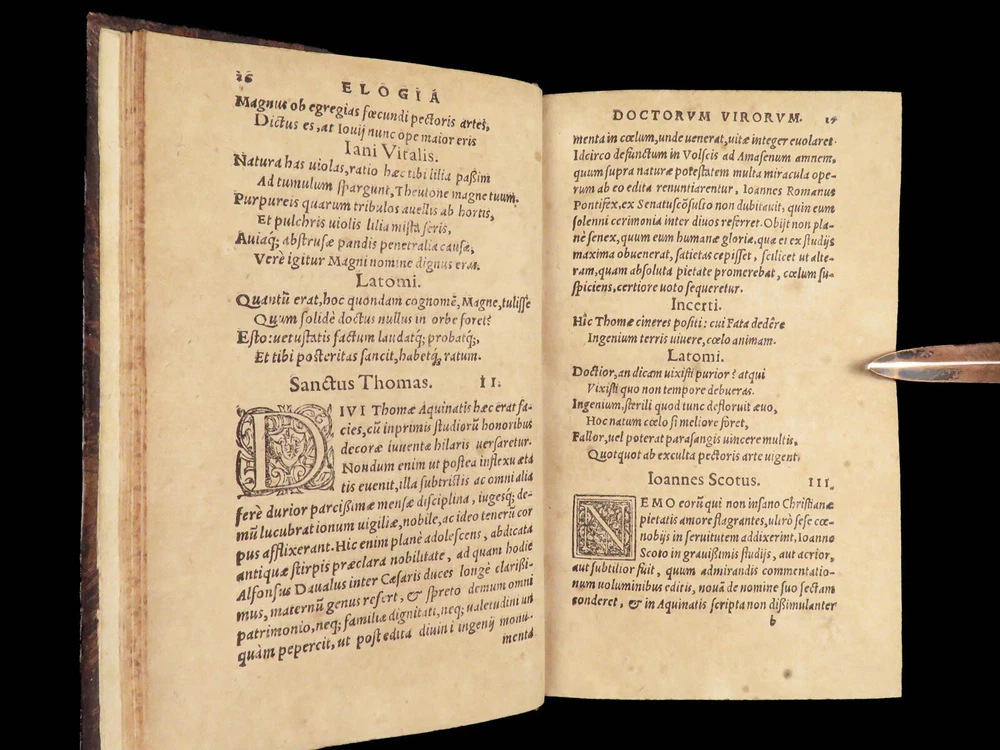 26
ELOGIA
Magnus ob egregias fœcundi pectoris artes,
Dictus es, at Iouij nunc ope maior eris
Iani Vitalis.
Natura has uiolas, ratio hæc tibi lilia paßim
Ad tumulum spargunt, Theutone magne tuum.
Purpureis quarum tribulos auellis ab hortis,
Et pulchris uiolis lilia mista seris,
Auiaq; abstrusæ pandis penetralia causæ,
Verè igitur Magni nomine dignus eras.
Latomi.
Quantũ erat, hoc quondam cognomẽ, Magne, tulisse
Quum solidè doctus nullus in orbe foret?
Esto: uetustatis factum laudatq́; probatq́;,
Et tibi posteritas sancit, habetq́, ratum.
Sanctus Thomas. II.
DIVI Thomæ Aquinatis hæc erat fa-
cies, cũ inprimis studiorũ honoribus
decoræ iuuentæ hilaris uersaretur.
Nondum enim ut postea inflexu æta
tis euenit, illa subtristis ac omni alia
ferè durior parcißimæ mensæ disciplina, iugesq́; de-
mũ lucubrationum uigiliæ, nobile, ac ideo tenerũ cor
pus afflixerant. Hic enim planè adolescens, abdicata
antiquæ stirpis præclara nobilitate, ad quam hodie
Alfonsus Daualus inter Cæsaris duces longè clarißi-
mus, maternũ genus refert, & spreto demum omni
patrimonio, neq; familiæ dignitati, neq; ualetudini un
quàm pepercit, ut post edita diuini ingenij monu-
menta
DOCTORVM VIRORVM.
menta in cœlum, unde uenerat, uitæ integer euolaret.
Idcirco defunctum in Volscis ad Amasenum amnem,
quum supra naturæ potestatem multa miracula ope-
rum ab eo edita renuntiarentur, Ioannes Romanus
Pontifex, ex Senatuscõsulto non dubitauit, quin eum
solenni cerimonia inter diuos referret. Obijt non pla-
nè senex, quum eum humanæ gloriæ, quæ ei ex studijs
maxima obuenerat, satietas cepisset, scilicet ut alte-
ram, quam absoluta pietate promerebat, cœlum su-
spiciens, certiore uoto sequeretur.
Incerti.
Hic Thomæ cineres positi: cui Fata dedêre
Ingenium terris uiuere, cœlo animam.
Latomi.
Doctior, an dicam uixisti purior? atqui
Vixisti quo non tempore debueras.
Ingenium, sterili quod tunc defloruit æuo,
Hoc natum cœlo si meliore foret,
Fallor, uel poterat parasangis uincere multis,
Quotquot ab exculta pectoris arte uigent.
Ioannes Scotus. III.
NEMO eorũ qui non insano Christianæ
pietatis amore flagrantes, ultrò sese cœ-
nobijs in seruitutem addixerint, Ioanne
Scoto in grauißimis studijs, aut acrior,
aut subtilior fuit, quum admirandis commentatio-
num uoluminibus editis, nouã de nomine suo sectam
conderet, & in Aquinatis scripta non dißimulanter
b